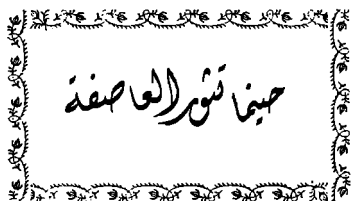 حينما تثور العاصفة